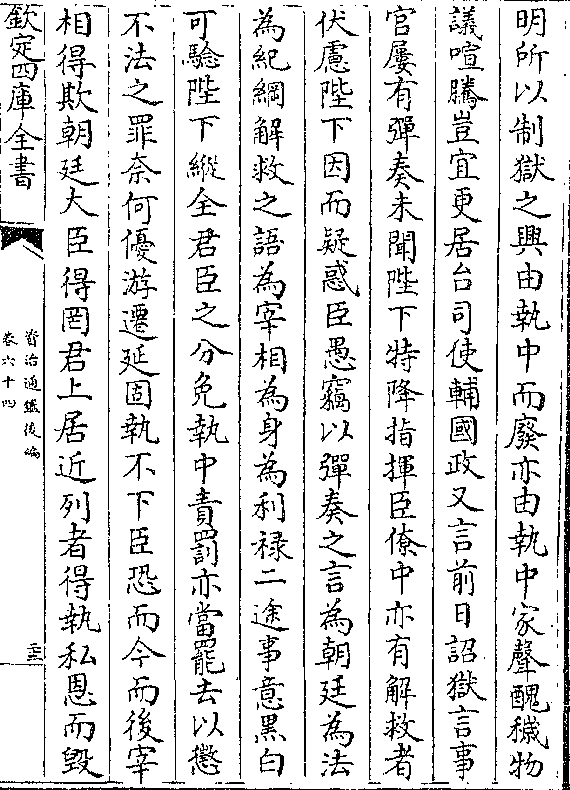 明所以制獄之興由執中而廢亦由執中家聲醜穢物
議喧騰豈宜更居台司使輔國政又言前日詔獄言事
官屢有彈奏未聞陛下特降指揮臣僚中亦有解救者
伏慮陛下因而疑惑臣愚竊以彈奏之言為朝廷為法
為紀綱解救之語為宰相為身為利祿二途事意黑白
可驗陛下縱全君臣之分免執中責罰亦當罷去以懲
不法之罪奈何優游遷延固執不下臣恐而今而後宰
相得欺朝廷大臣得罔君上居近列者得執私恩而毀
欽定四庫全書
資治通鑑後編
卷六十四
三三